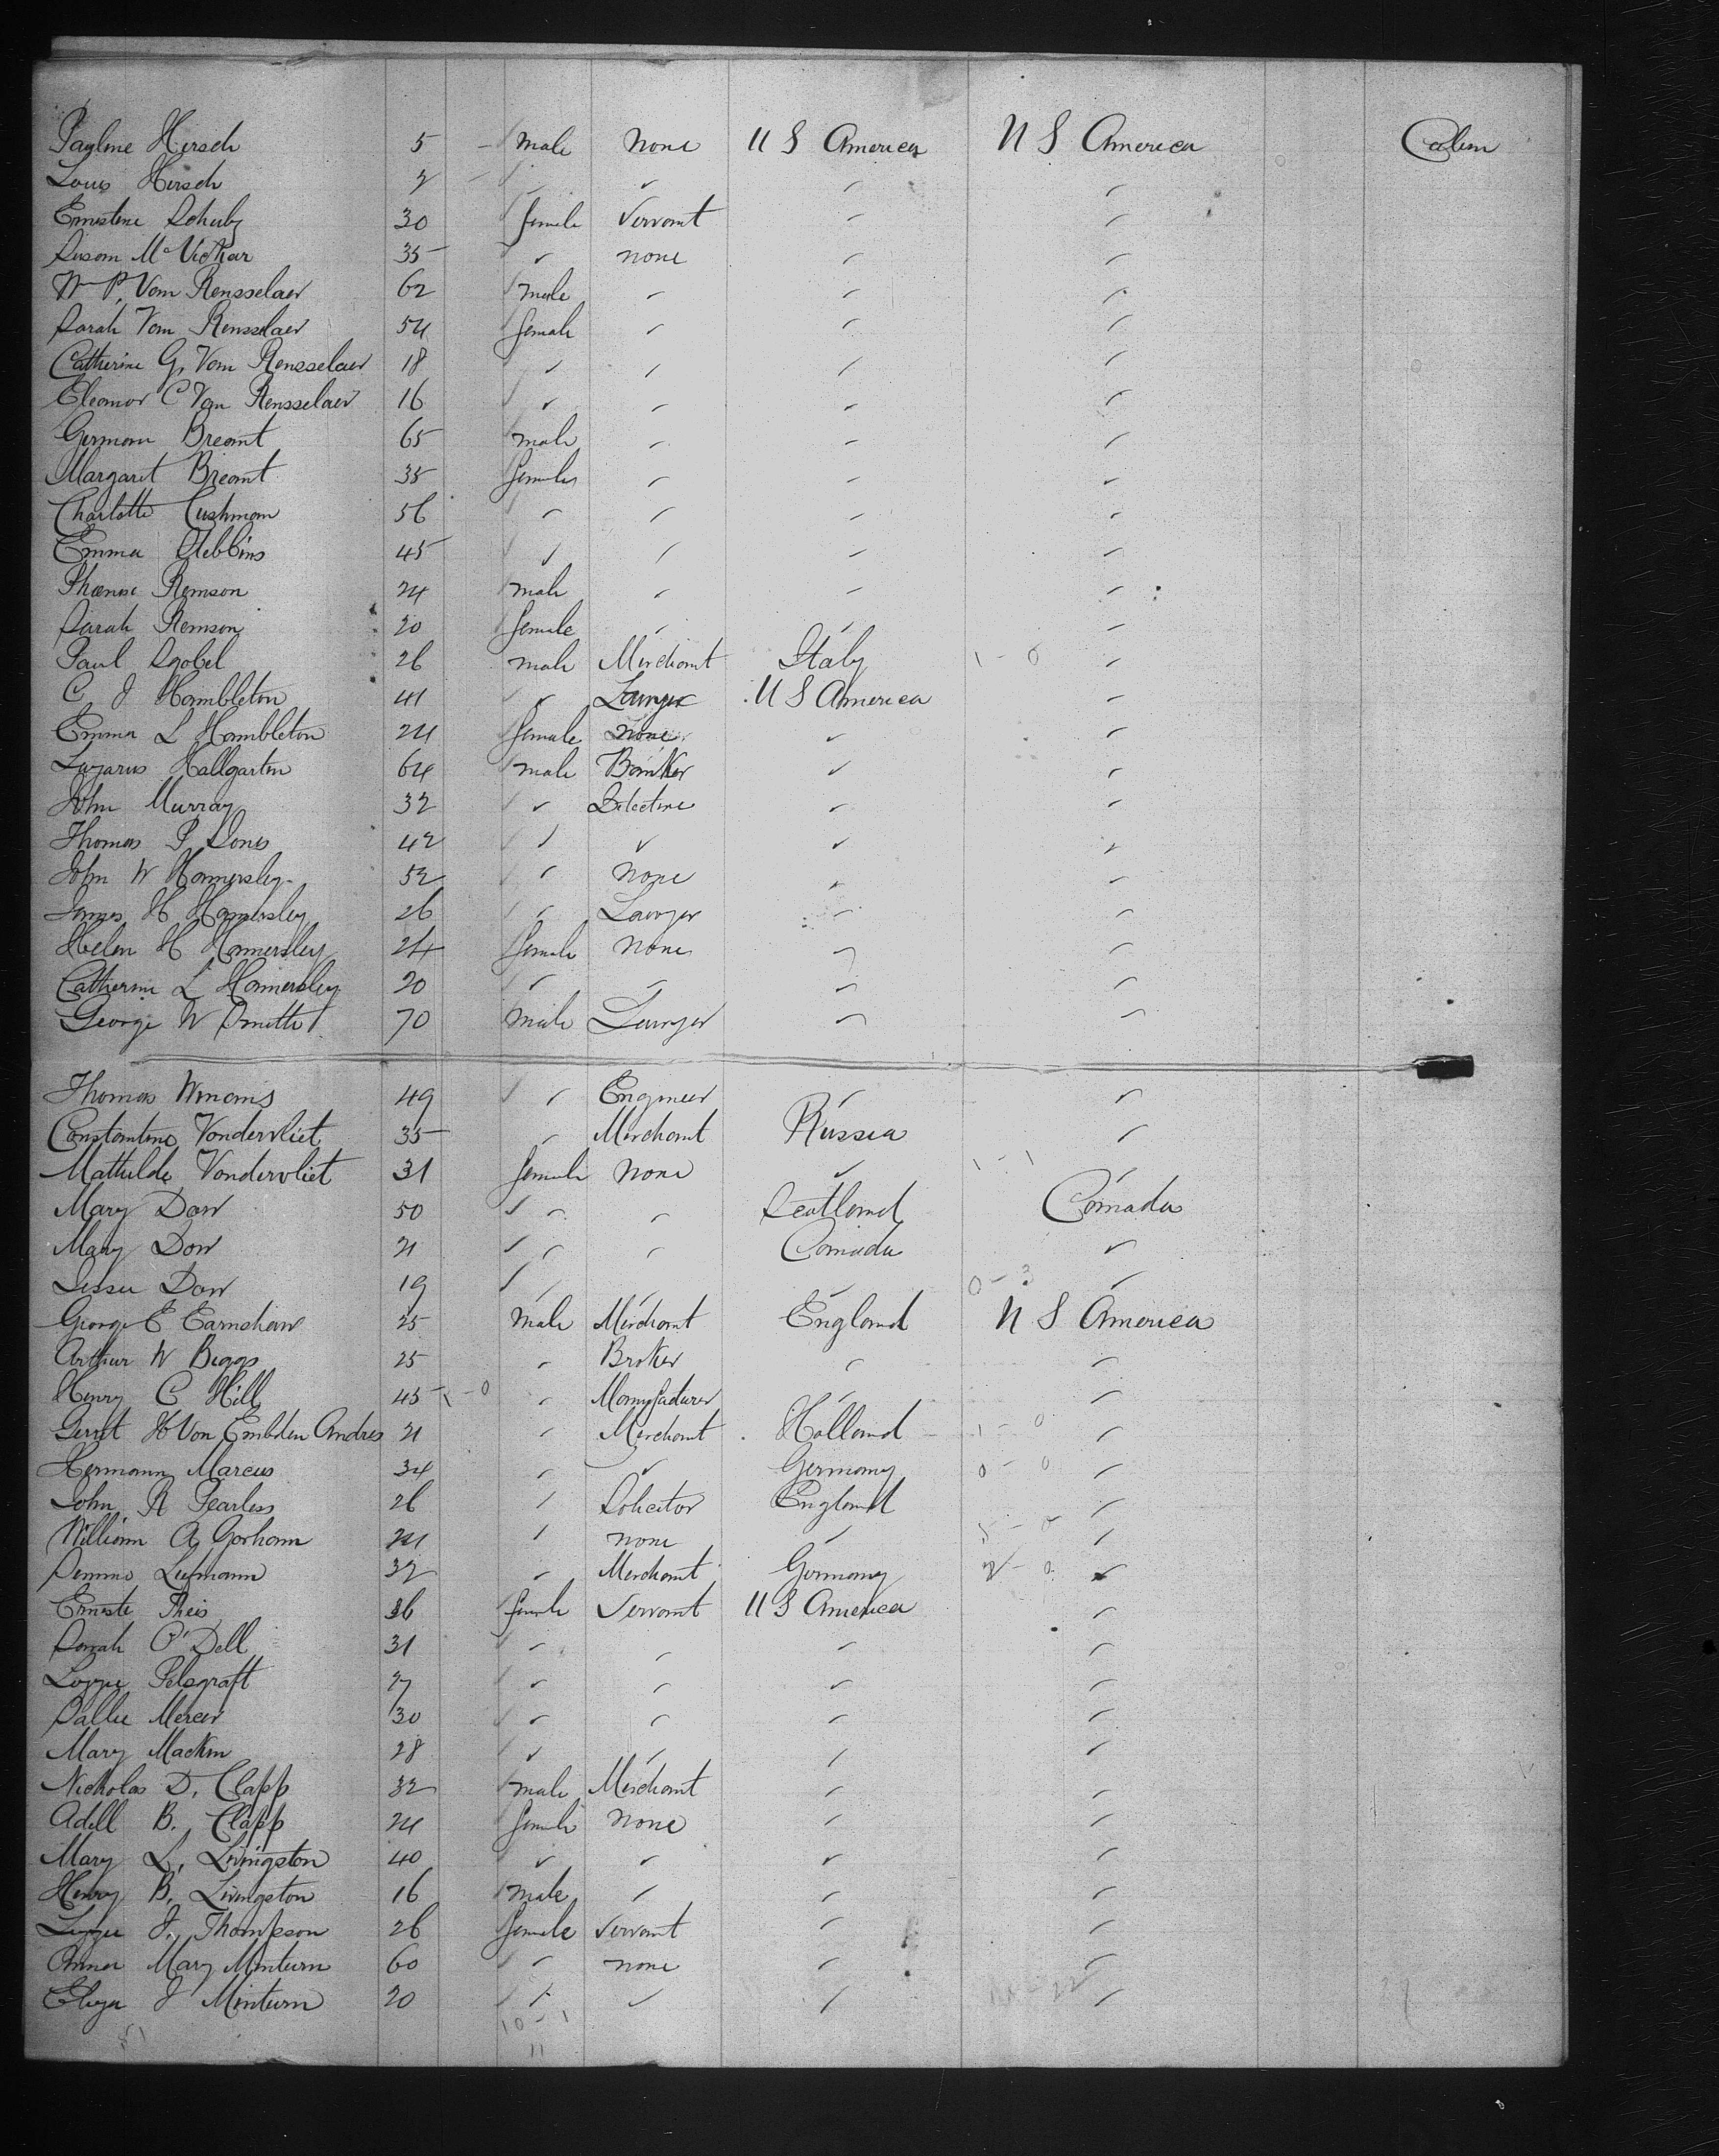 Pauline Hirsch 5 - male none U S America U S America Cabin
Louis Hirsch 2 - ✓ ✓ ✓ ✓
Ernestine Schuly 30 female Servant ✓ ✓
Susan McVickar 35 ✓ none ✓ ✓
Wm P. Van Rensselaer 62 male ✓ ✓ ✓
Sarah Van Rensselaer 54 female ✓ ✓ ✓
Catherine G. Van Rensselaer 18 ✓ ✓ ✓ ✓
Eleanor C Van Rensselaer 16 ✓ ✓ ✓ ✓
German Breant 65 male ✓ ✓ ✓
Margaret Breant 35 female ✓ ✓ ✓
Charlotte Cushman 56 ✓ ✓ ✓ ✓
Emma Stebbins 45 ✓ ✓ ✓ ✓
Remson 24 male ✓ ✓ ✓
Sarah Remson 20 female ✓ ✓ ✓
Paul Sgobel 26 male Merchant Italy 1 - 0 ✓
C J Hambleton 41 ✓ Lawyer U S America ✓
Emma L Hambleton 24 female None ✓ ✓
Lazarus Hallgarten 64 male Banker ✓ ✓
John Murray 32 ✓ Detective ✓ ✓
Thomas P Jones 42 ✓ ✓ ✓ ✓
John W Hamersley 52 ✓ None ✓ ✓
James H Hamersley 26 ✓ Lawyer ✓ ✓
Helen H Hamersley 24 female None ✓ ✓
Catherine L Hamersley 20 ✓ ✓ ✓ ✓
George W Smith 70 male Lawyer ✓ ✓
Thomas Winans 49 ✓ Engineer ✓ ✓
Constantine Vondervliet 35 ✓ Merchant Russia ✓
Mathilde Vondervliet 31 female None ✓ 1 - 1 ✓
Mary Dow 50 ✓ ✓ Scotland Canada
Mary Dow 21 ✓ ✓ Canada ✓
Jessie Dow 19 ✓ ✓ ✓ 0 - 3 ✓
George E Earnshaw 25 male Merchant England U S America
Arthur W Biggs 25 ✓ Broker ✓ ✓
Henry C Hill 45 1 - 0 ✓ Manufacturer ✓ ✓
Gerrit H Von Embden Andres 21 ✓ Merchant Holland 1 - 0 ✓
Hermann Marcus 34 ✓ ✓ Germany 0 - 0 ✓
John R Pearless 26 ✓ Solicitor England ✓
William A Gorham 24 ✓ none ✓ 5 - 0 ✓
Lufmann 32 ✓ Merchant Germany 2 - 0 ✓
Erneste Theis 36 female Servant U S America ✓
Sarah O'Dell 31 ✓ ✓ ✓ ✓
Pelsgraft 27 ✓ ✓ ✓ ✓
Sallie Mercer 30 ✓ ✓ ✓ ✓
Mary Mackin 28 ✓ ✓ ✓ ✓
Nicholas D. Clapp 32 male Merchant ✓ ✓
Adell B. Clapp 24 female none ✓ ✓
Mary L. Livingston 40 ✓ ✓ ✓ ✓
Henry B. Livingston 16 male ✓ ✓ ✓
Lizzie J. Thompson 26 female Servant ✓ ✓
Anna Mary Minturn 60 ✓ none ✓ ✓
Eliza J Minturn 20 ✓ ✓ ✓ ✓
51 10 - 1
11